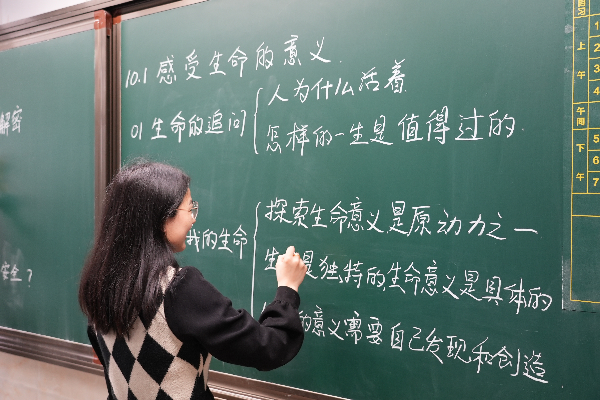 解密
安全？
10.1 感受生命的意义
01 生命的追问
人为什么活着
怎样的一生是值得过的
我的生命
探索生命意义是原动力之一
生 是独特的,生命意义是具体的
的意义需要自己发现和创造
上午
1
2
3
4
午间
下午
5
6
7